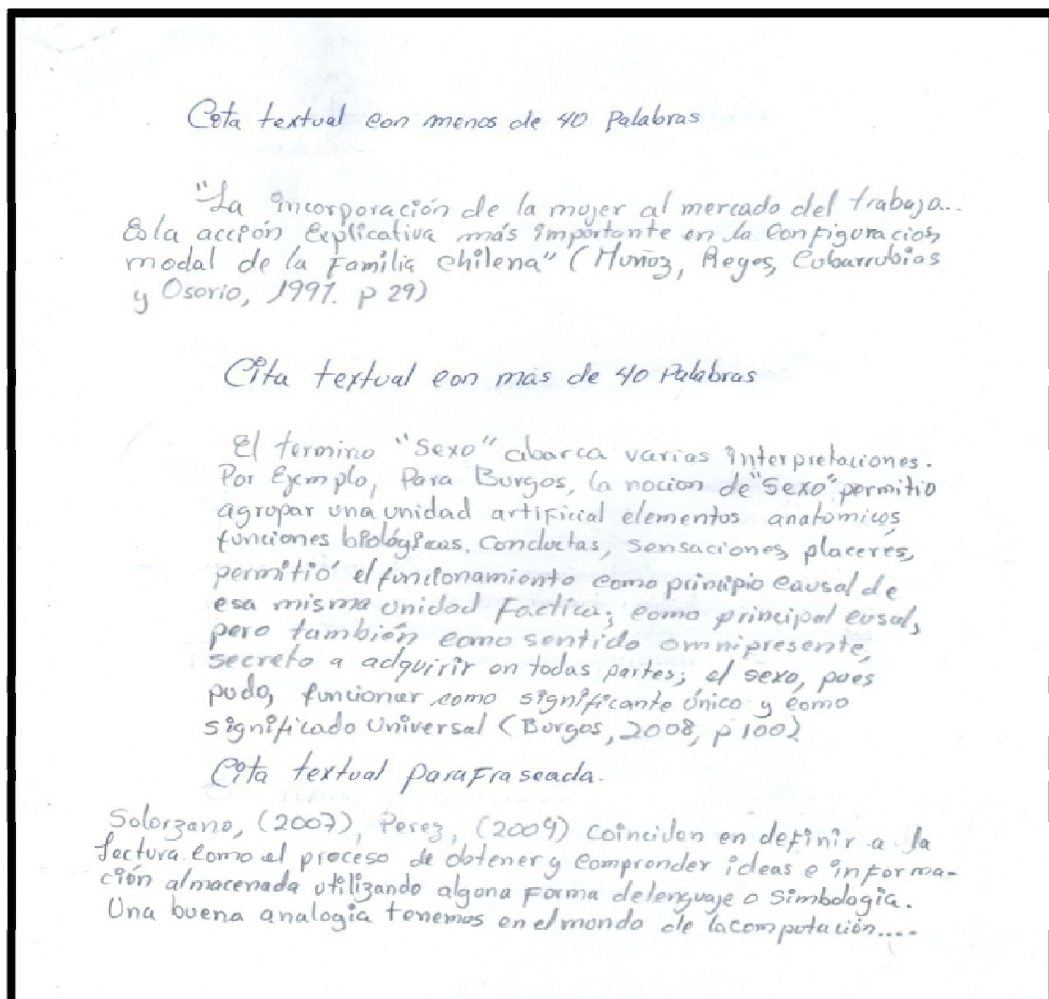 Cita textual con menos de 40 Palabras
"La incorporación de la mujer al mercado del trabajo...
Es la acción Explicativa más importante en la Configuración
modal de la Familia chilena" (Muñoz, Reyes, Cobarrubias
y Osorio, 1991. p 29)
Cita textual con más de 40 Palabras
El termino "Sexo" abarca varias interpretaciones.
Por Ejemplo, Para Burgos, la nocion de "sexo" permitio
agrupar una unidad artificial elementos anatomicos,
funciones biológicas, Conductas, Sensaciones, placeres,
permitió el funcionamiento como principio causal de
esa misma unidad Factica; como principal cusal,
pero también como sentido omnipresente,
secreto a adquirir en todas partes; el sexo, pues
pudo, funcionar como significante único y como
significado Universal (Burgos, 2008, p 100)
Cita textual paraFraseada.
Solorzano, (2007), Perez, (2009) coinciden en definir a la
lectura como el proceso de obtener y comprender ideas e informa-
ción almacenada utilizando alguna Forma de lenguaje o Simbologia.
Una buena analogia tenemos en el mundo de la computación....